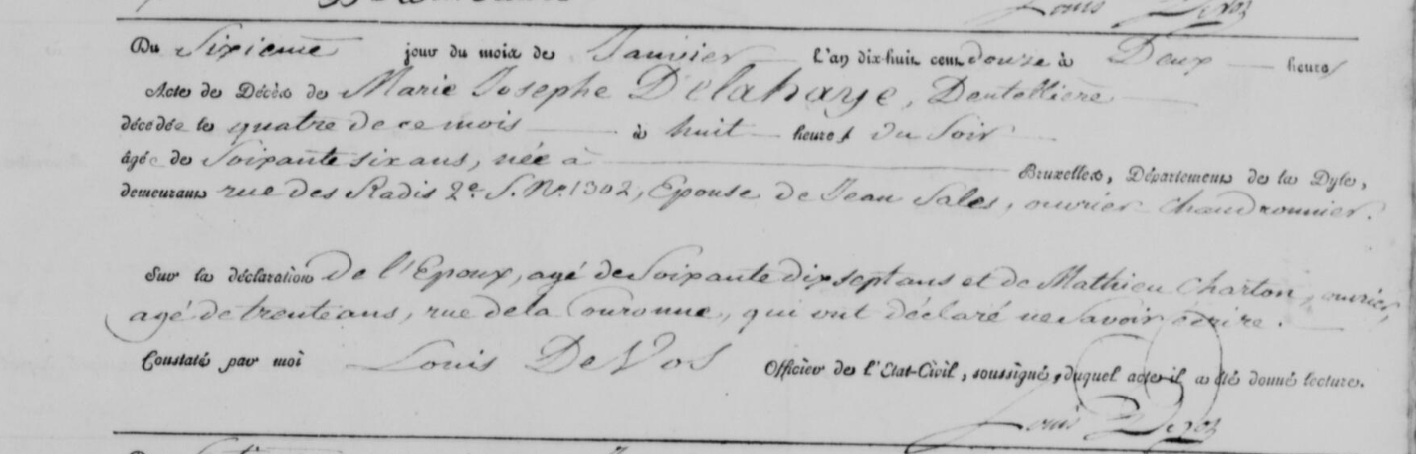 Louis Devos
Du Sixieme jour du mois de Janvier l'an dix-huit cent douze à Deux heures
Acte de Décès de Marie Josephe Delahaye, Dentellière
décédée le quatre de ce mois à huit heures du Soir
âgée de Soixante six ans, née à Bruxelles, Département de la Dyle,
demeurant rue des Radis 2e. S. No. 1302, Epouse de Jean Sales, ouvrier chaudronnier.
Sur la déclaration de l'Epoux, agé de Soixante dix sept ans et de Mathieu Charton, ouvrier,
agé de trente ans, rue de la Couronne, qui ont déclaré ne Savoir écrire.
Constaté par moi Louis DeVos Officier de l'Etat-Civil, soussigné, duquel acte il a été donné lecture.
Louis Devos